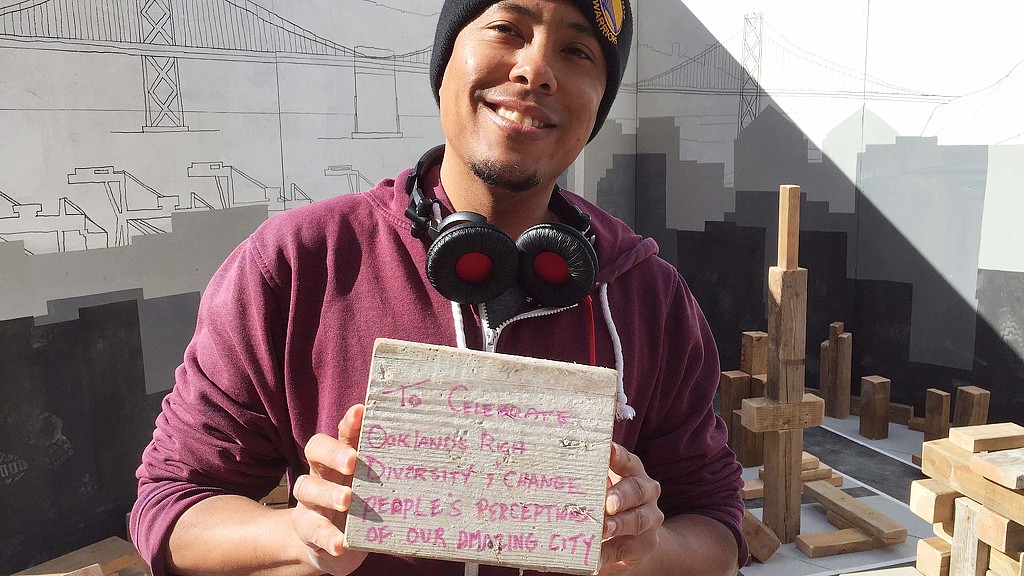 WARRIORS
TO CELEBRATE
OAKLAND'S RICH
DIVERSITY & CHANGE
PEOPLE'S PERCEPTIONS
OF OUR AMAZING CITY